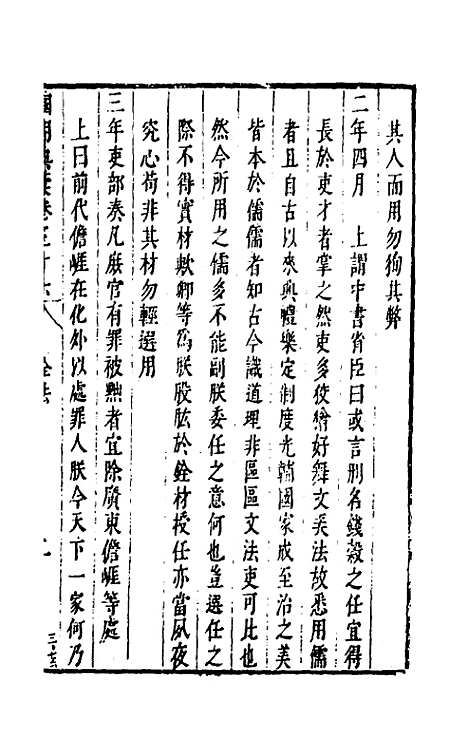 其人而用勿狥其弊
二年四月　上謂中書省臣曰或言刑名錢穀之任宜得
長於吏才者掌之然吏多狡獪好舞文弄法故悉用儒
者且自古以來興禮樂定制度光輔國家成至治之美
皆本於儒儒者知古今識道理非區區文法吏可比也
然今所用之儒多不能副朕委任之意何也豈選任之
際不得實材歟卿等爲朕股肱於銓材授任亦當夙夜
究心茍非其材勿輕選用
三年吏部奏凡庶官有罪被黜者宜除廣東儋崖等處
上曰前代儋崖在化外以處罪人朕今天下一家何乃
國朝典彙卷三十六
九